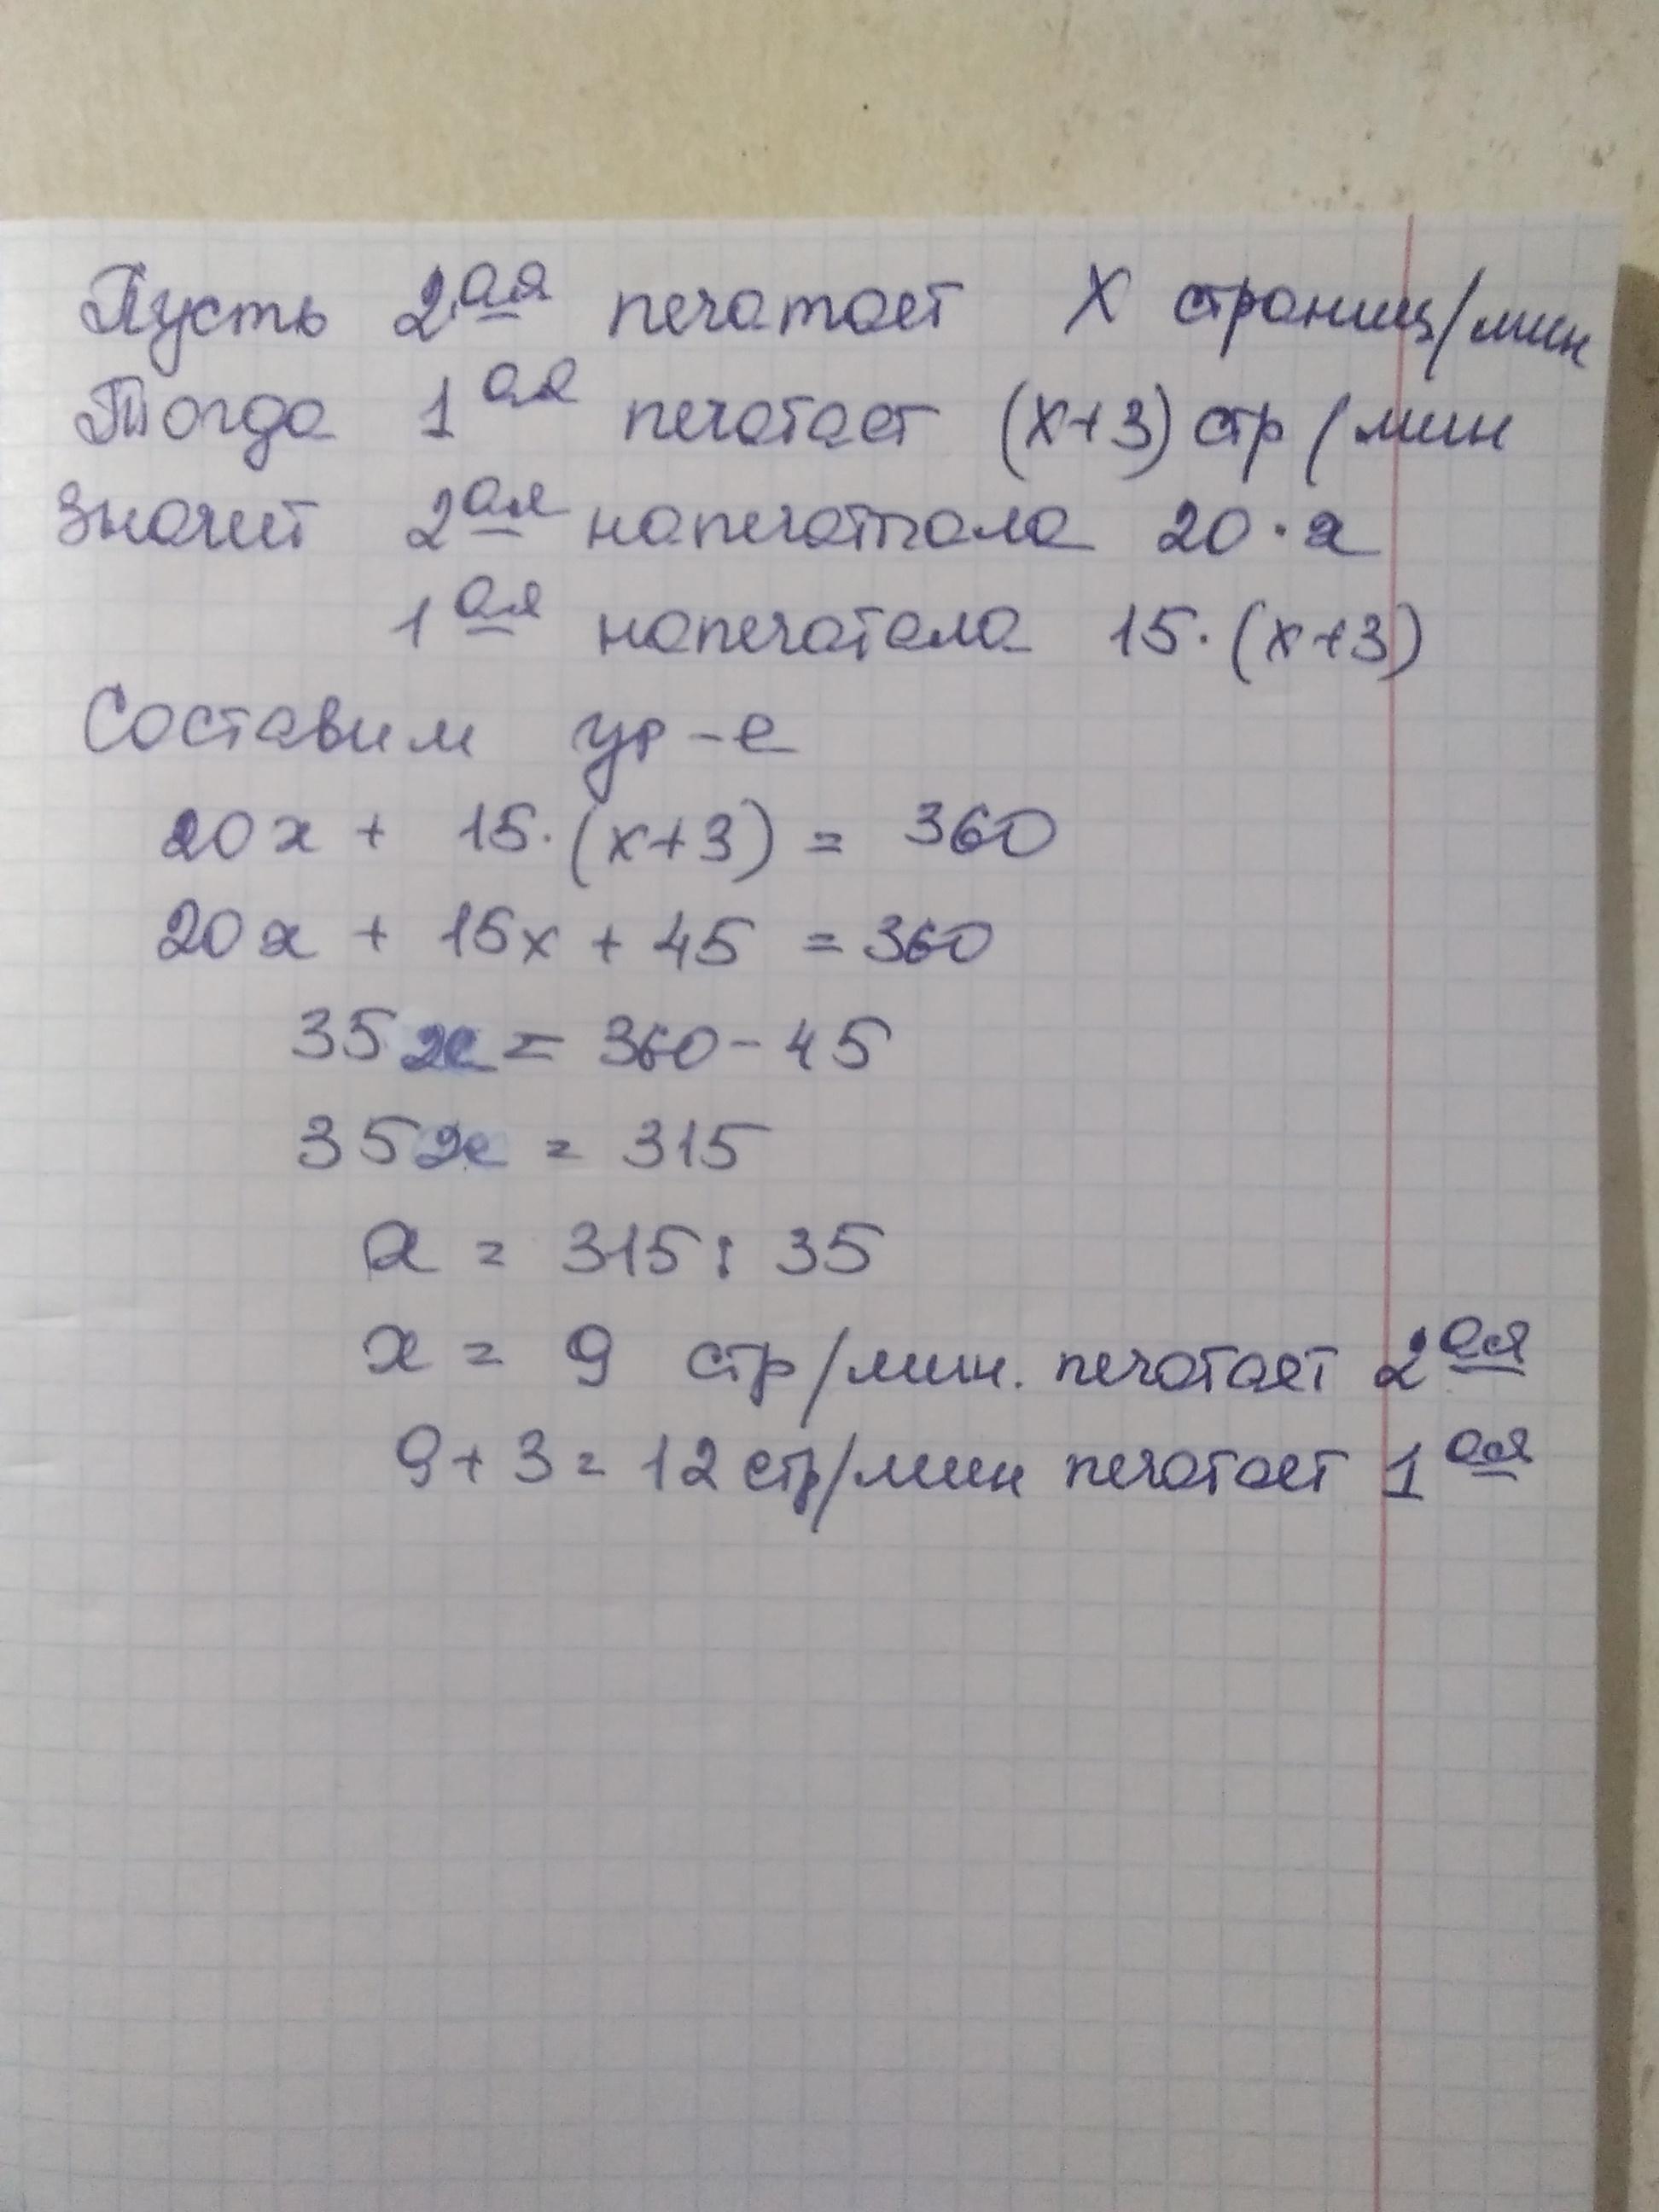 Пусть 2ая печатает X страниц/мин
Тогда 1ая печатает (x+3) стр/мин
Значит 2ая напечаттала 20·x
1ая напечатала 15·(x+3)
Составим ур-е
20x + 15·(x+3) = 360
20x + 15x + 45 = 360
35x = 360-45
35x = 315
x = 315:35
x = 9 стр/мин. печатает 2ая
9+3=12 стр/мин печатает 1ая